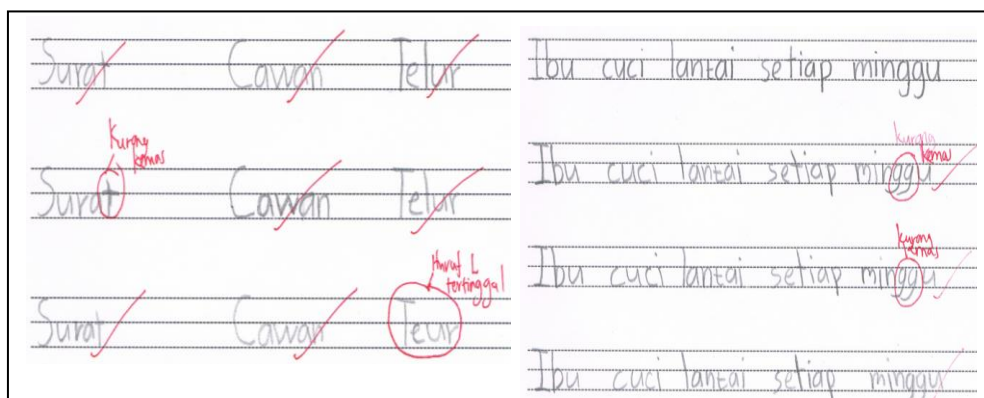 Surat Cawan Telur
Kurang
kemas
Surat Cawan Telur
Huruf L
tertinggal
Surat Cawan Teur
Ibu cuci lantai setiap minggu
kurang
kemas
Ibu cuci lantai setiap minggu
kurang
kemas
Ibu cuci lantai setiap minggu
Ibu cuci lantai setiap minggu